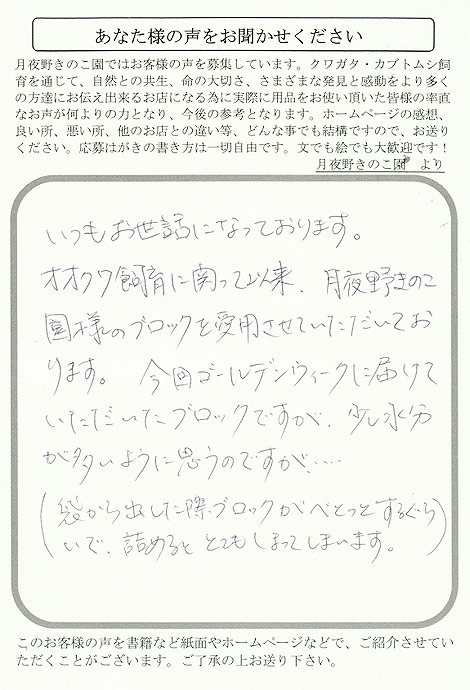 あなた様の声をお聞かせください
月夜野きのこ園ではお客様の声を募集しています。クワガタ・カブトムシ飼
育を通じて、自然との共生、命の大切さ、さまざまな発見と感動をより多く
の方達にお伝え出来るお店になる為に実際に用品をお使い頂いた皆様の率直
なお声が何よりの力となり、今後の参考となります。ホームページの感想、
良い所、悪い所、他のお店との違い等、どんな事でも結構ですので、お送り
ください。応募はがきの書き方は一切自由です。文でも絵でも大歓迎です！
月夜野きのこ園 より
いつもお世話になっております。
オオクワ飼育に関って以来、月夜野きのこ
園様のブロックを愛用させていただいてお
ります。 今回ゴールデンウィークに届けて
いただいたブロックですが、少し水分
が多いように思うのですが……
(袋から出した際、ブロックがべとっとするぐら
いで、詰めると とてもしまってしまいます。)
このお客様の声を書籍など紙面やホームページなどで、ご紹介させてい
ただくことがございます。ご了承の上お送り下さい。